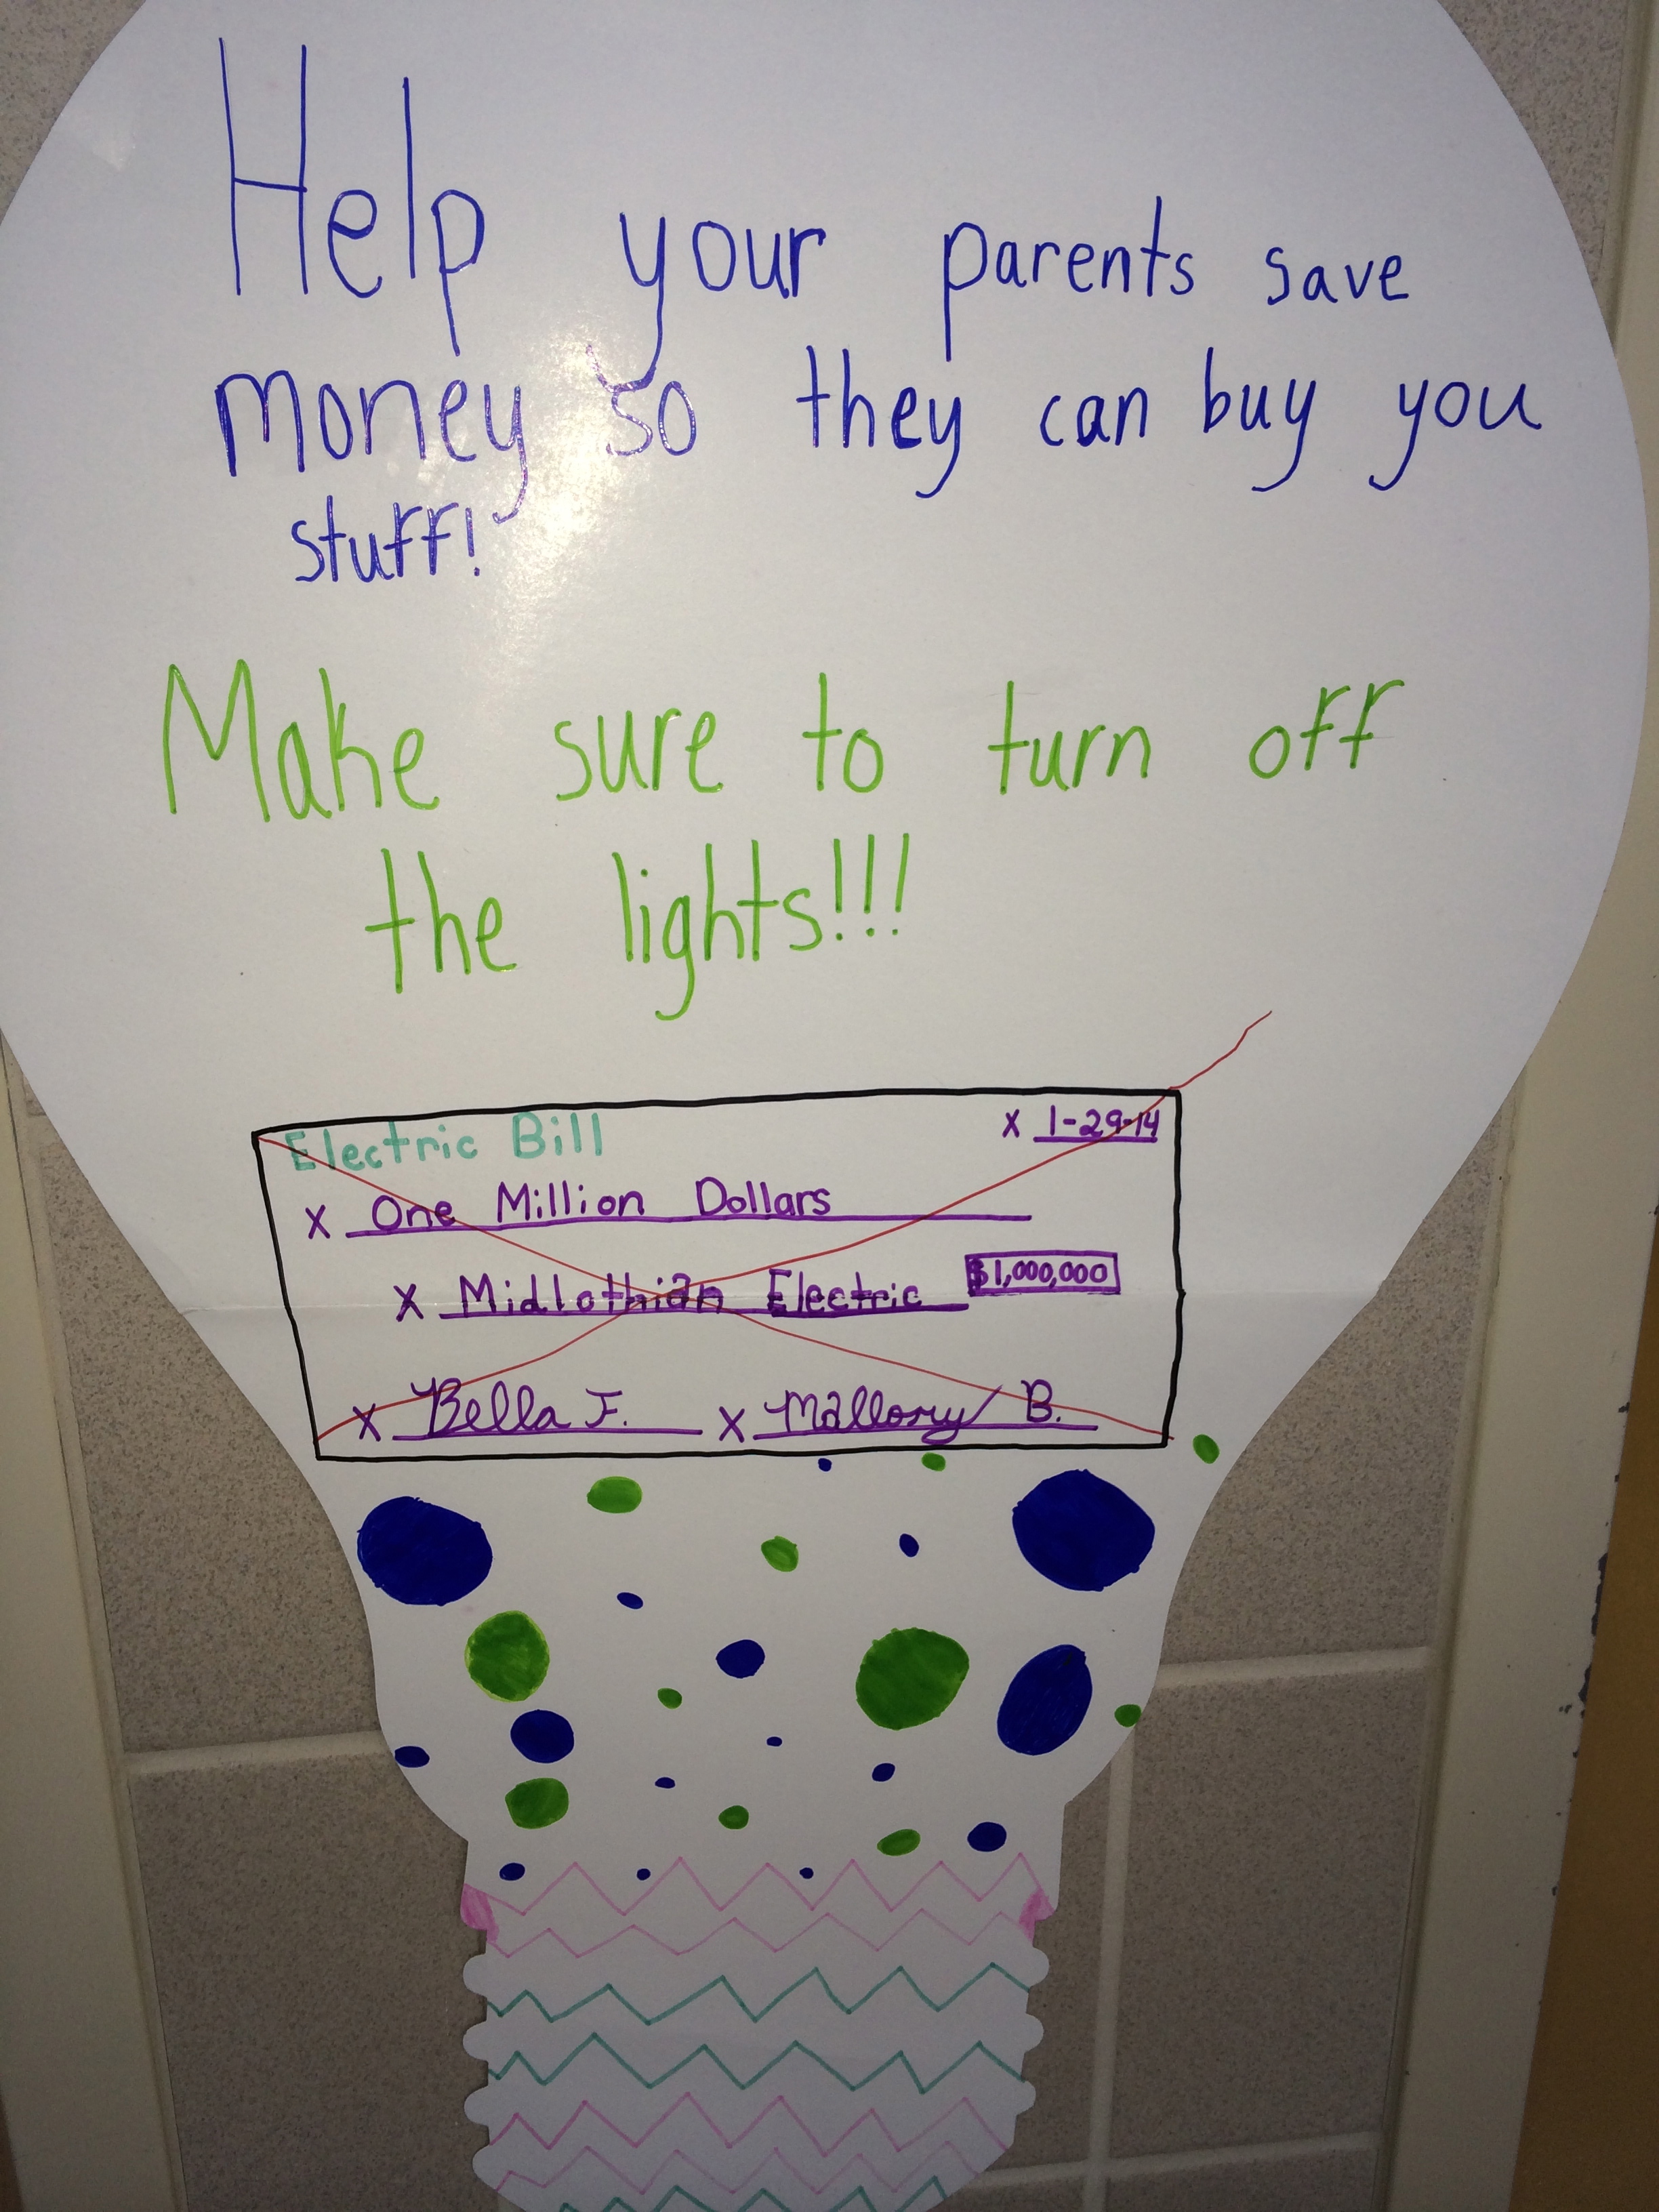 Help your parents save
money so they can buy you
stuff!
Make sure to turn off
the lights!!!
Electric Bill X 1-29-14
X One Million Dollars
X Midlothian Electric $1,000,000
X Bella F. X Mallory B.